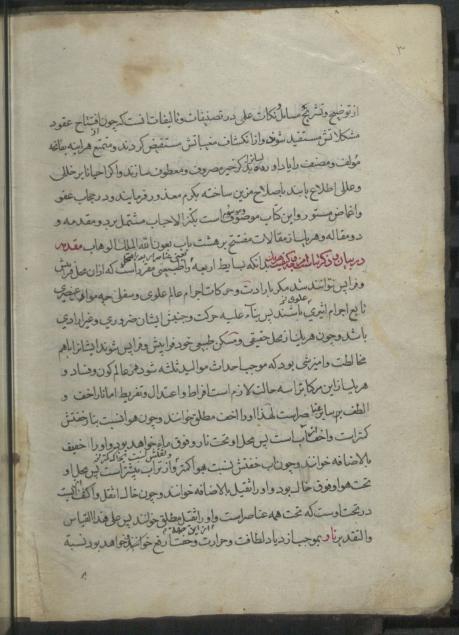 از توضیح و تشریح مسایل و نکات علمی در تصنیفات و تالیفات آنست که چون افتتاح عقود
مشکلاتش مستفید شوند و از انکشاف مغیباتش مستفیض کردند و متمتع هر اینه بفاتحه
مولف و مصنف را یاد آورده بذکر خیر مصروف و معطوف سازند و اکر احیانا بر خللی
و عللی اطلاع یابند باصلاح مزین ساخته بکرم معذور فرمایند و در حجاب عفو
و اغماض مستور و این کتاب موسوم است بکنز الاحباب مشتمل بر دو مقدمه و
دو مقاله و هر یک از مقالات مفتتح بر هشت باب بعون الله الملک الوهاب مقدمه
در بیان بدانکه بسایط اربعه و طبیعی مفرد است که از ان محل فرایش
و فراپس نتوانند شد مکر باراد ت و حرکات اجرام عالم علوی و سفلی چه مواد عنصری
تابع اجرام اثیری باشند پس بناء علیه حرکت و جنبش ایشان ضروری و غیر ارادی
باشد و چون هر یک از محل حقیقی و مسکن طبیعی خود فراپیش و فراپس شوند ایشانرا باهم
مخالطت و امیزشی بود که موجب احداث موالید ثلثه شود در عالم کون و فساد و
هر یک از این مرکبات را سه حالت لازم است افراط و اعتدال و تفریط اما نار اخف و
الطف بر سایر عناصر است لهذا او را خفت مطلق خوانند و چون هوا نسبت بنار خفتش
کمتر است و اخف از آب است پس محل او تحت نار و فوق ماء خواهد بود و او را خفیف
بالاضافه خوانند و چون آب خفتش نسبت بهوا کمتر و از تراب بیشتر است پس محل او
تحت هوا و فوق خاک بود و او را ثقیل بالاضافه خوانند و چون خاک اثقل و اکثف است
در تحت اوست که تحت همه عناصر است و او را ثقیل مطلق خوانند پس علی هذا القیاس
و التقدیر نار و بموجب ازدیاد لطافت و حرارت و خفت ارفع خواهد بود نسبة